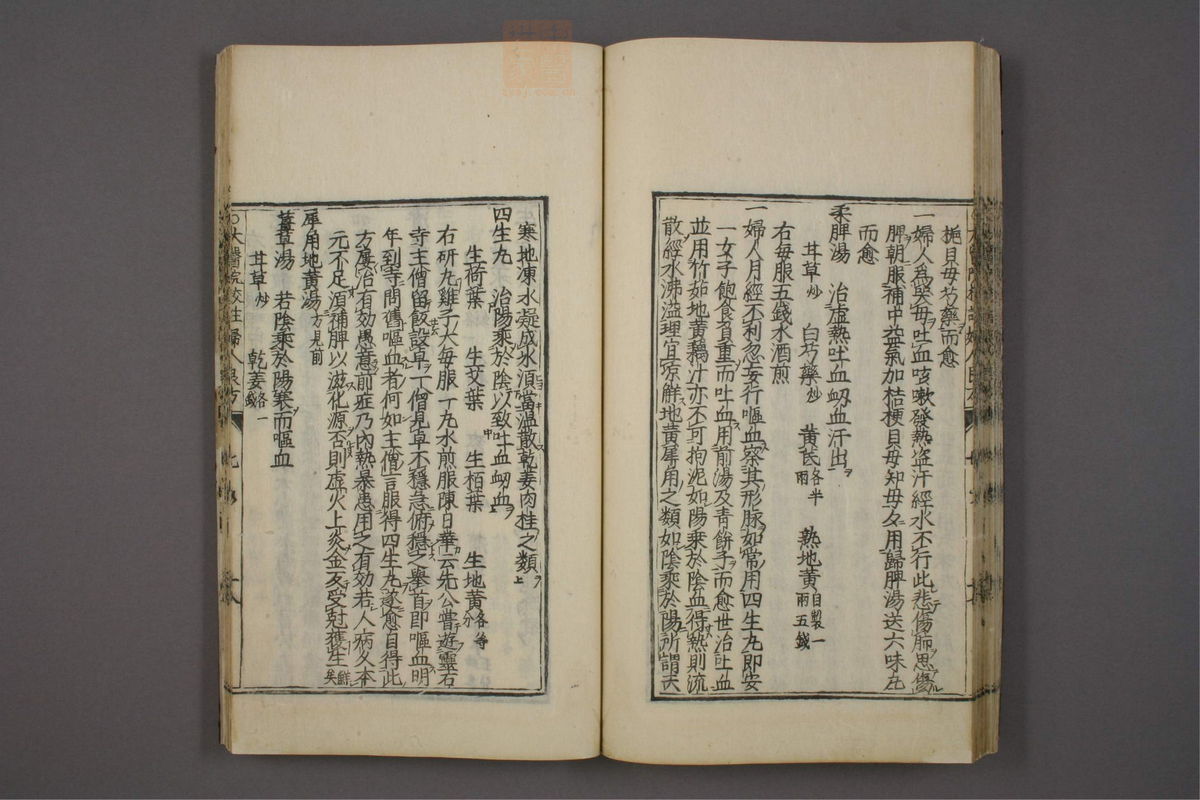 梔貝母芍藥而愈
一婦人爲哭母吐血咳嗽發熱盜汗經水不行此悲傷肺思傷
脾朝服補中益氣加桔梗貝母知母夕用歸脾湯送六味丸
而愈
柔脾湯 治虛熱吐血衂血汗出
甘草炒 白芍藥炒 黃芪各半兩 熟地黃自製一兩五錢
右每服五錢水酒煎
一婦人月經不利忽妄行嘔血察其形脉如常用四生丸即安
一女子飽食負重而吐血用前湯及青餅子而愈世治吐血
並用竹茹地黃藕汁亦不可拘泥如陽乘於陰血得熱則流
散經水沸溢理宜凉解地黃犀用之類如陰乘於陽所謂天
寒地凍水凝成氷湏當溫散乾姜肉桂之類
四生丸 治陽乘於陰以致吐血衂血
生荷葉 生艾葉 生栢葉 生地黃各等分
右研丸雞子大每服一丸水煎服陳日華云先公嘗遊靈石
寺主僧留飯設卓一僧見卓不穩急俯穩之舉首即嘔血明
年到寺問舊嘔血者何如主僧言服得四生丸遂愈自得此
方屢治有効愚意前症乃內熱暴患用之有効若人病久本
元不足湏補脾以滋化源否則虛火上炎金反受尅獲生鮮矣
犀角地黃湯方見前
甘草湯 若陰乘於陽寒而嘔血
甘草炒 乾姜各一錢
太醫院校註婦人良方